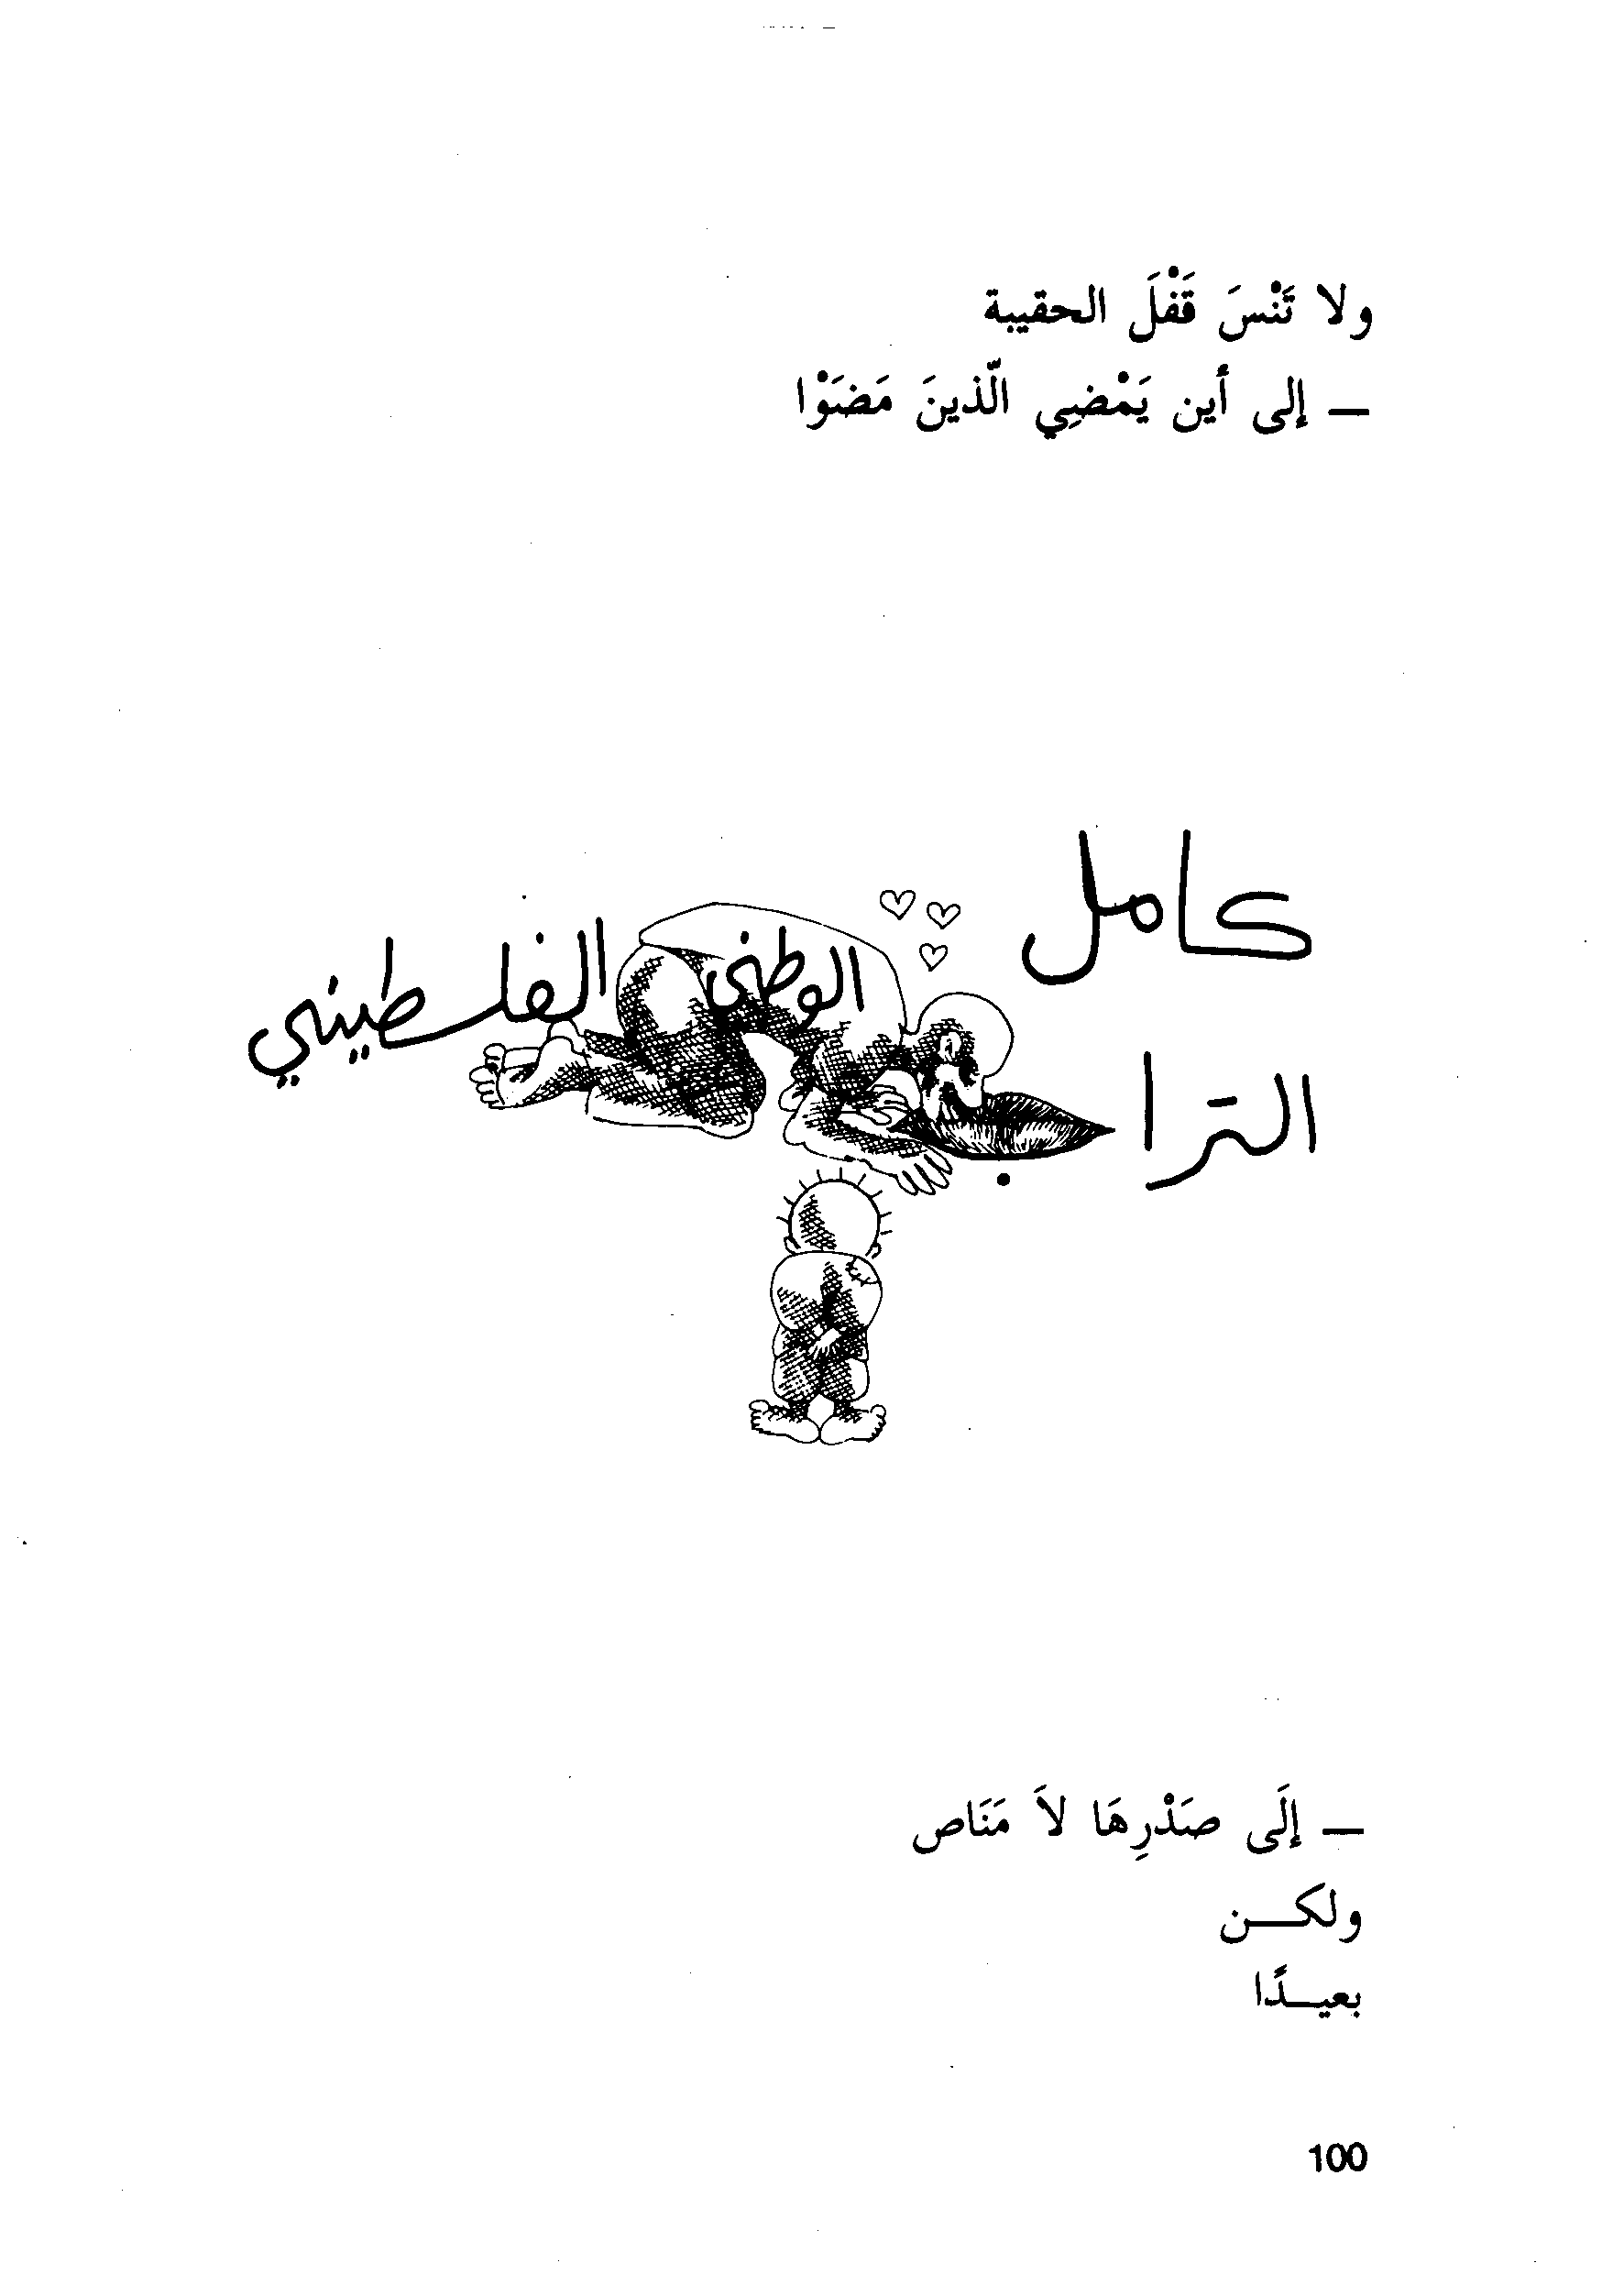 ولا تَنْسَ قَفْلَ الحقيبة
— إلى أين يَمْضِي الّذينَ مَضَوْا
كامل
التراب
الوطني الفلسطيني
— إلَى صَدْرِهَا لاَ مَنَاص
ولكـــن
بعيــدًا
100